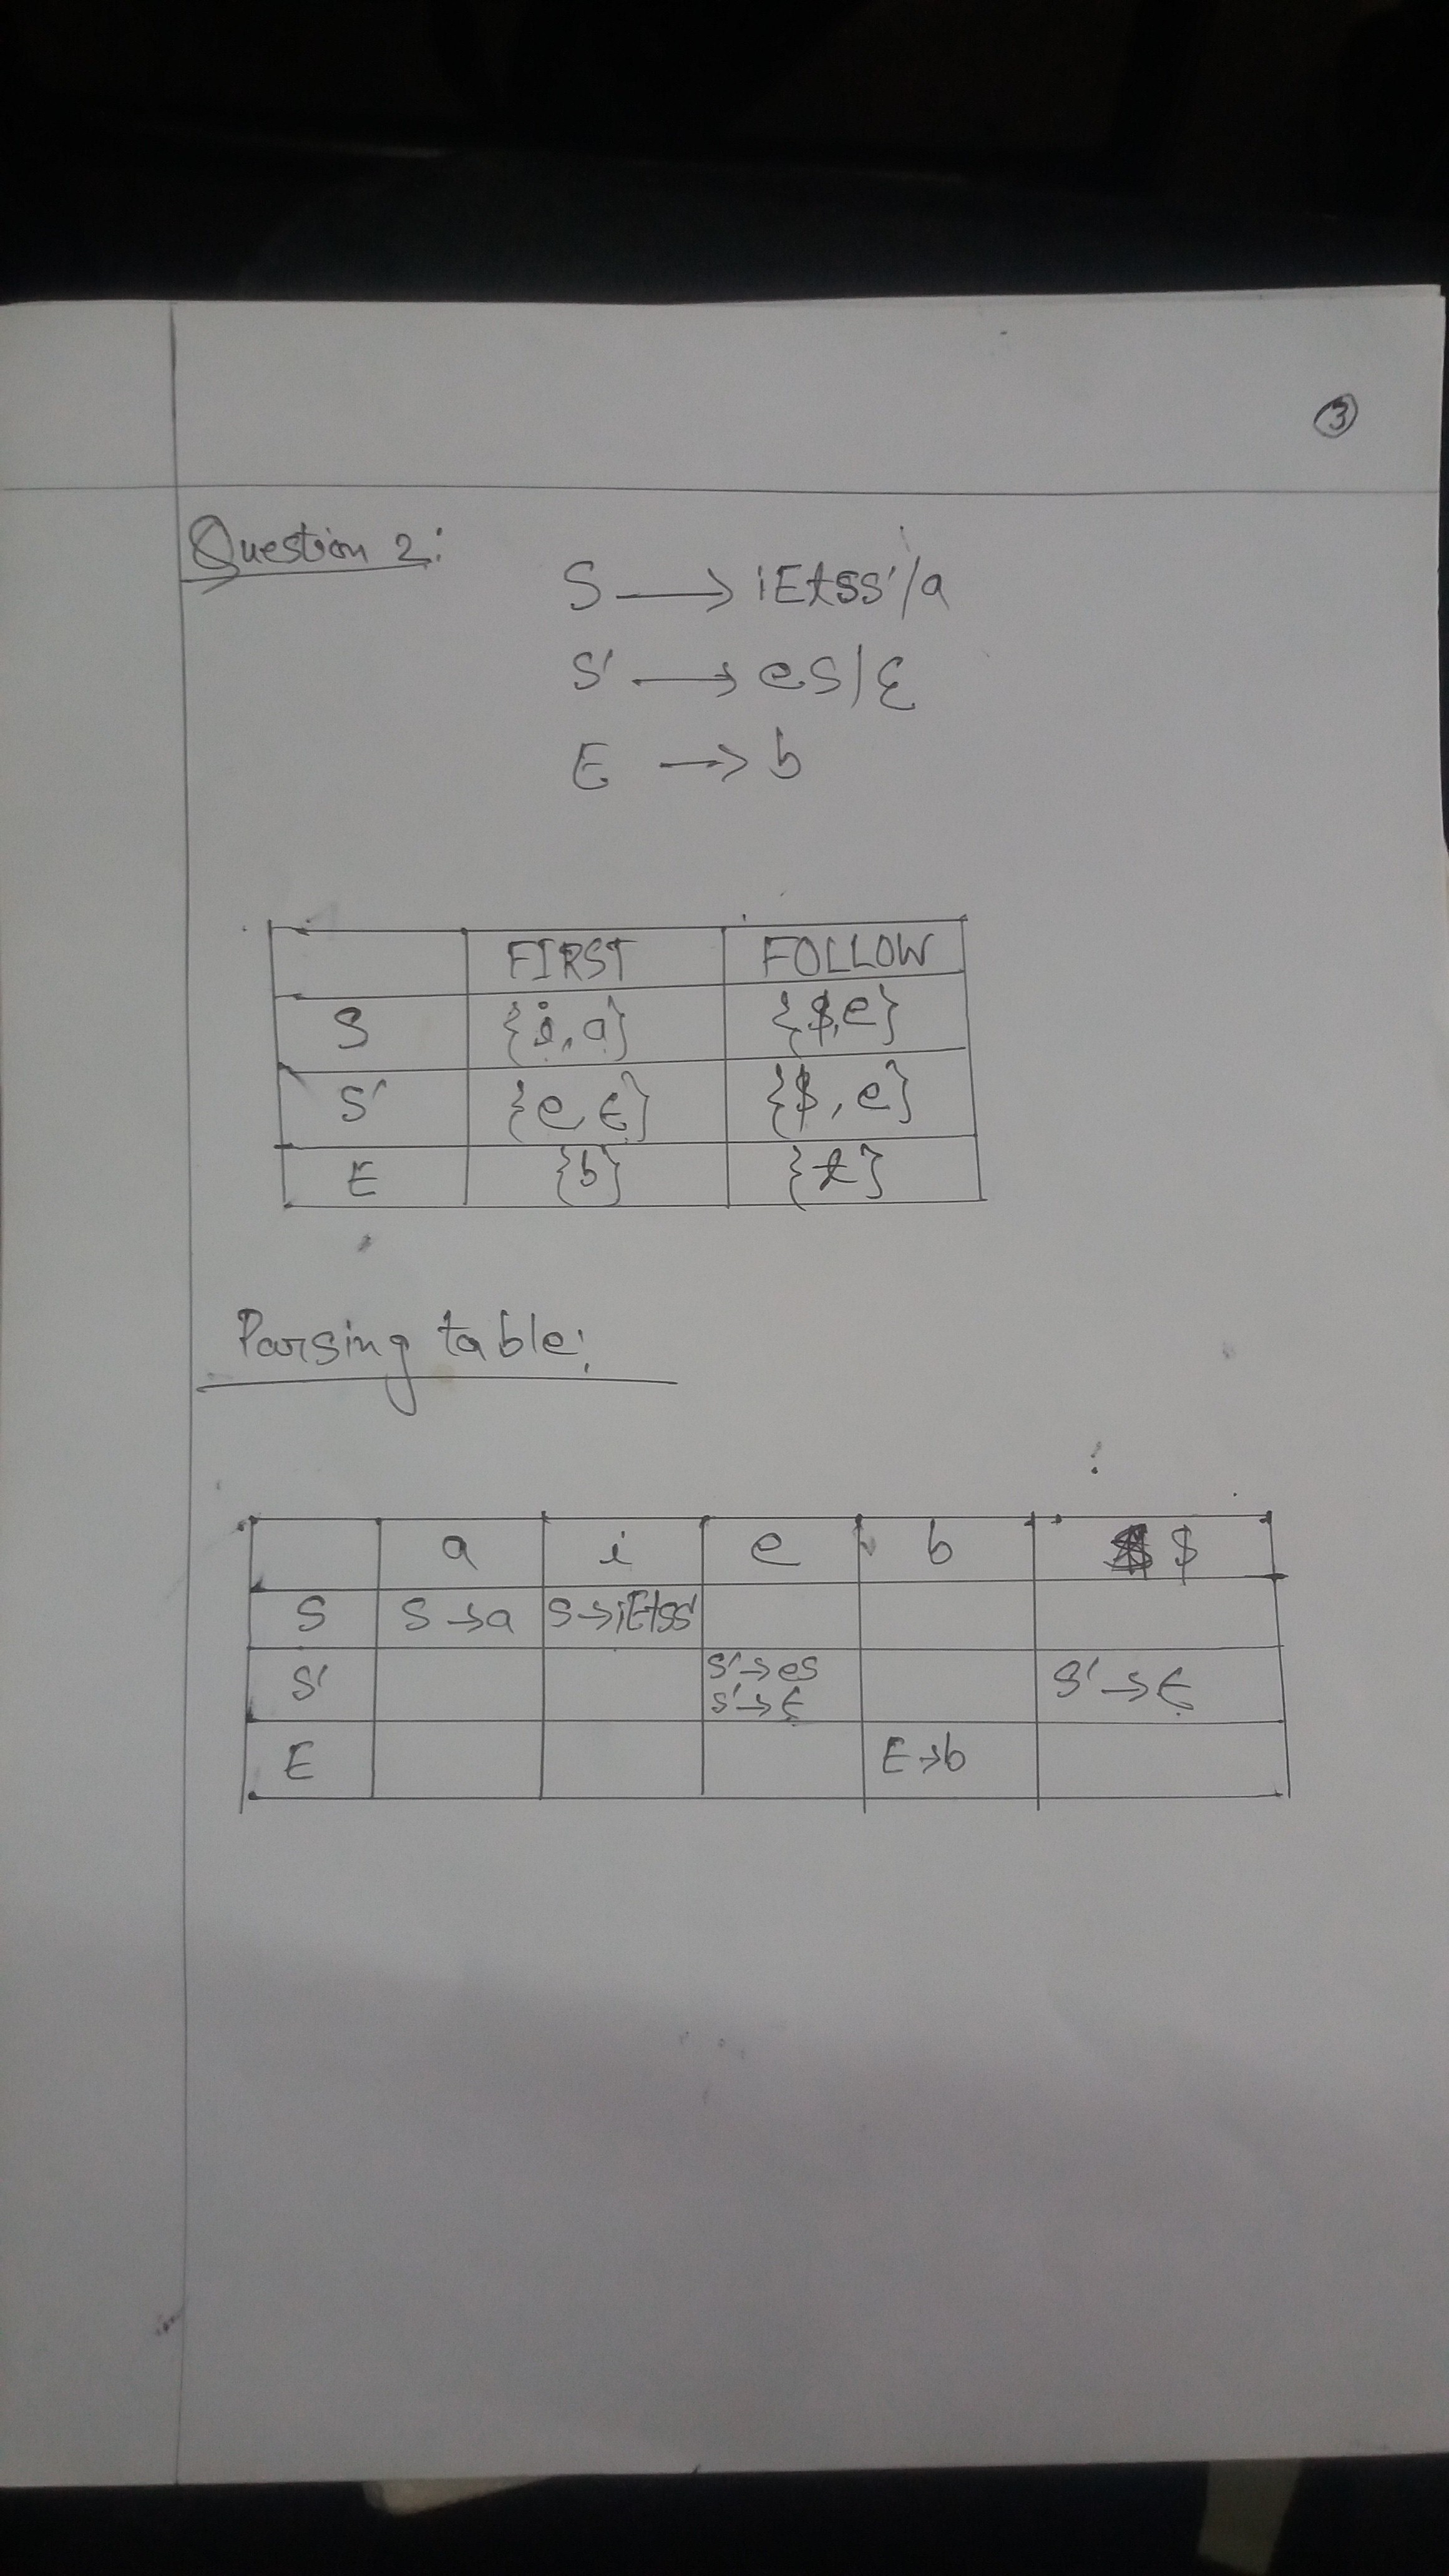 3
Question 2:
S → iEtSS'/a
S' → eS/ε
E → b
FIRST FOLLOW
S {i,a} {$,e}
S' {e,ε} {$,e}
E {b} {t}
Parsing table:
a i e b $
S S→a S→iEtSS'
S' S'→eS S'→ε
S'→ε
E E→b